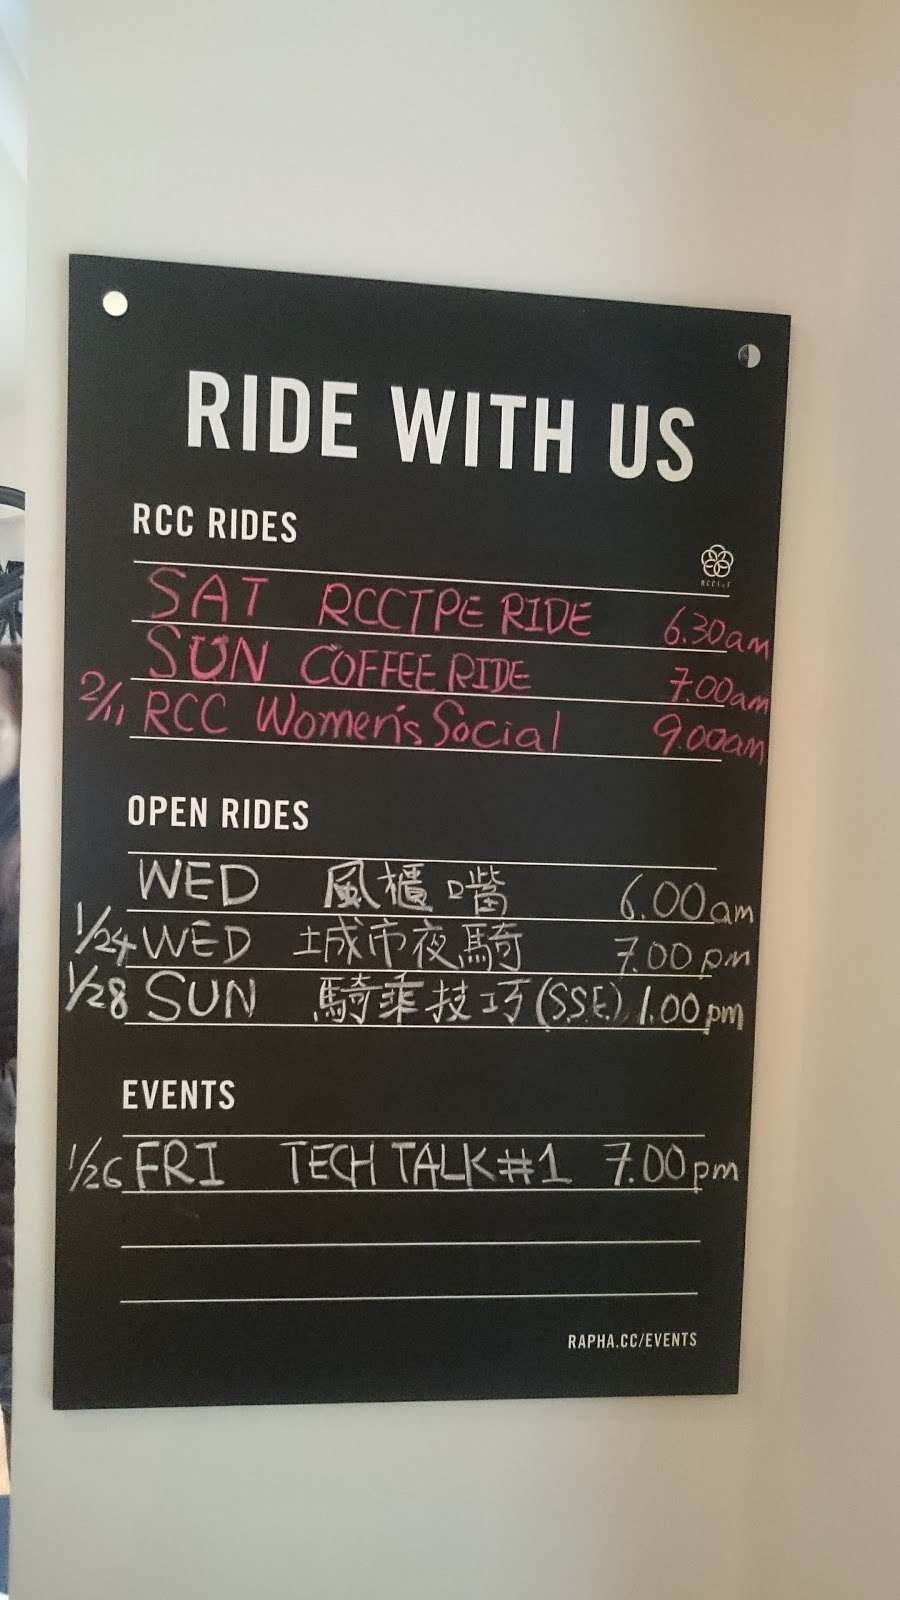 RIDE WITH US
RCC RIDES
SAT RCCTPE RIDE 6.30am
SUN COFFEE RIDE 7.00am
2/11 RCC Women's Social 9.00am
OPEN RIDES
WED 風櫃嘴 6.00am
1/24 WED 城市夜騎 7.00pm
1/28 SUN 騎乘技巧(SSE) 1.00pm
EVENTS
1/26 FRI TECH TALK #1 7.00pm
RAPHA.CC/EVENTS